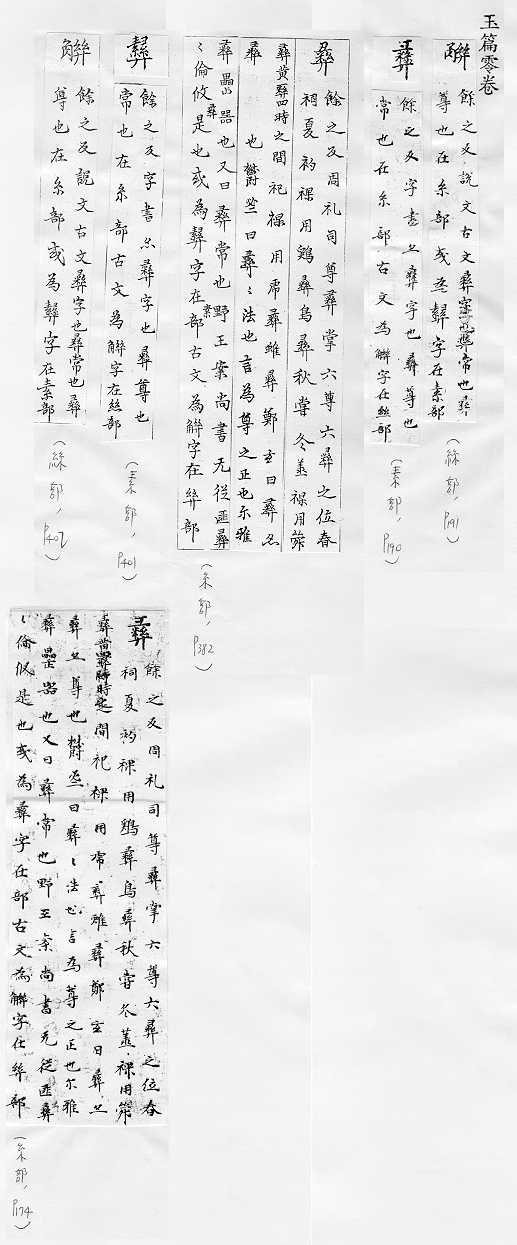 玉篇零卷
餘之反說文古文彝字也彝常也彝
尊也在糸部或為字在素部
(絲部,P191)
彝
餘之反字書亦彝字也彝尊也
常也在糸部古文為字在絲部
(素部,P190)
彝
餘之反周礼司尊彝掌六尊六彝之位春
祠夏礿祼用鷄彝鳥彝秋甞冬蒸祼用斝
彝黃彝四時之間祀祼用虎彝蜼彝鄭玄曰彝
彝也欝鬯曰彝〻法也言為尊之正也尔雅
彝罍器也又曰彝常也野王案尚書无從匪彝
〻倫攸是也或為字在素部古文為字在絲部
(糸部,P382)
彝
餘之反字書亦彝字也彝尊也
常也在糸部古文為字在絲部
(素部,P401)
餘之反說文古文彝字也彝常也彝
尊也在糸部或為字在素部
(絲部,P402)
彝
餘之反周礼司尊彝掌六尊六彝之位春
祠夏礿祼用鷄彝鳥彝秋甞冬蒸祼用斝
彝黃彝時之間祀祼用虎彝蜼彝鄭玄曰彝
彝亦尊也欝鬯曰彝〻法也言為尊之正也尔雅
彝罍器也又曰彝常也野王案尚書无從匪彝
〻倫攸是也或為彝字在部古文為字在絲部
(糸部,P174)